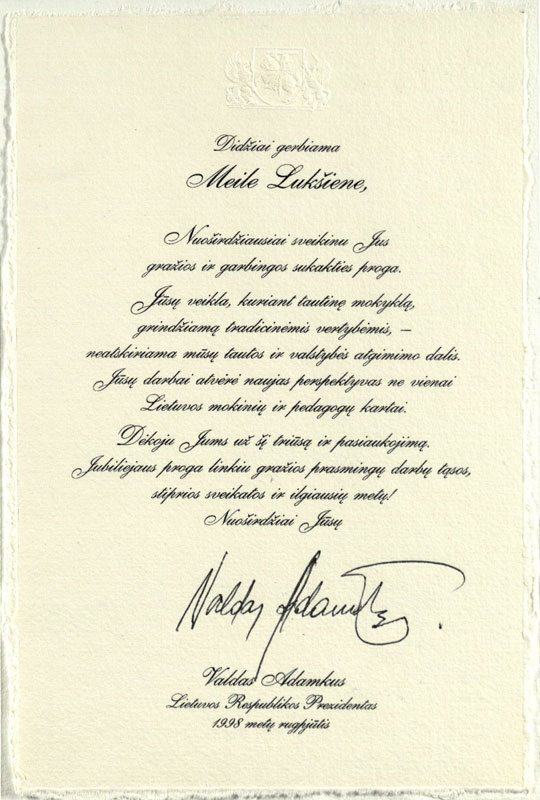 Didžiai gerbiama
Meile Lukšiene,
Nuoširdžiausiai sveikinu Jus
gražios ir garbingos sukakties proga.
Jūsų veikla, kuriant tautinę mokyklą,
grindžiamą tradicinėmis vertybėmis, –
neatskiriama mūsų tautos ir valstybės atgimimo dalis.
Jūsų darbai atvėrė naujas perspektyvas ne vienai
Lietuvos mokinių ir pedagogų kartai.
Dėkoju Jums už šį triūsą ir pasiaukojimą.
Jubiliejaus proga linkiu gražios prasmingų darbų tąsos,
stiprios sveikatos ir ilgiausių metų!
Nuoširdžiai Jūsų
Valdas Adamkus
Valdas Adamkus
Lietuvos Respublikos Prezidentas
1998 metų rugpjūtis